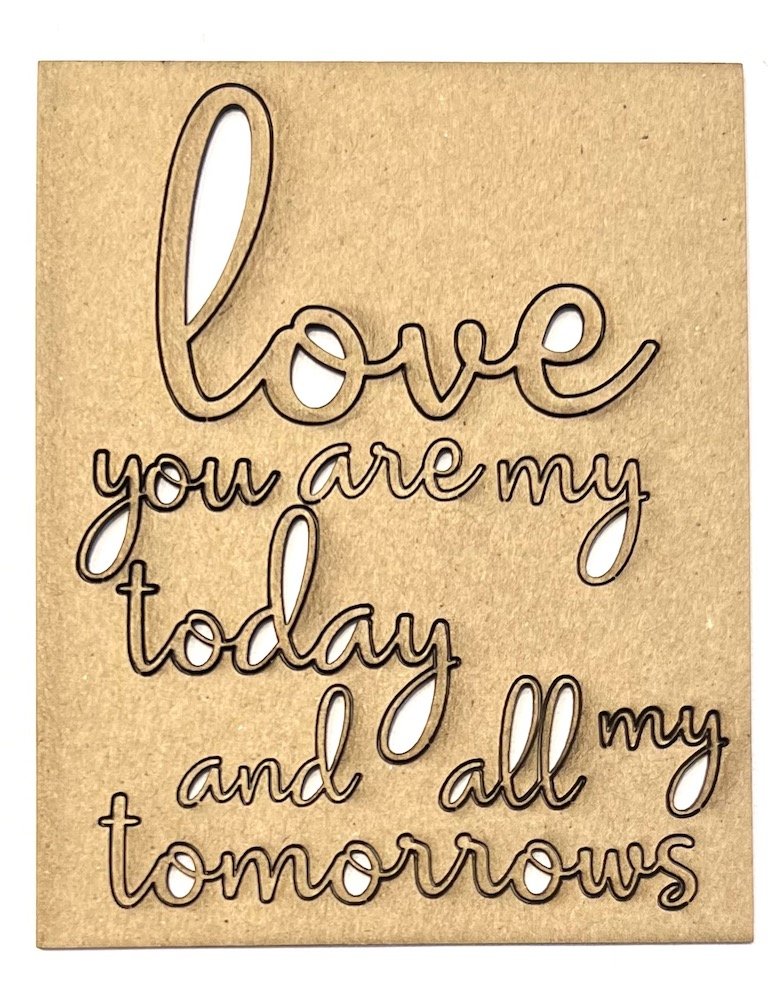 love
you are my
today
and all my
tomorrows